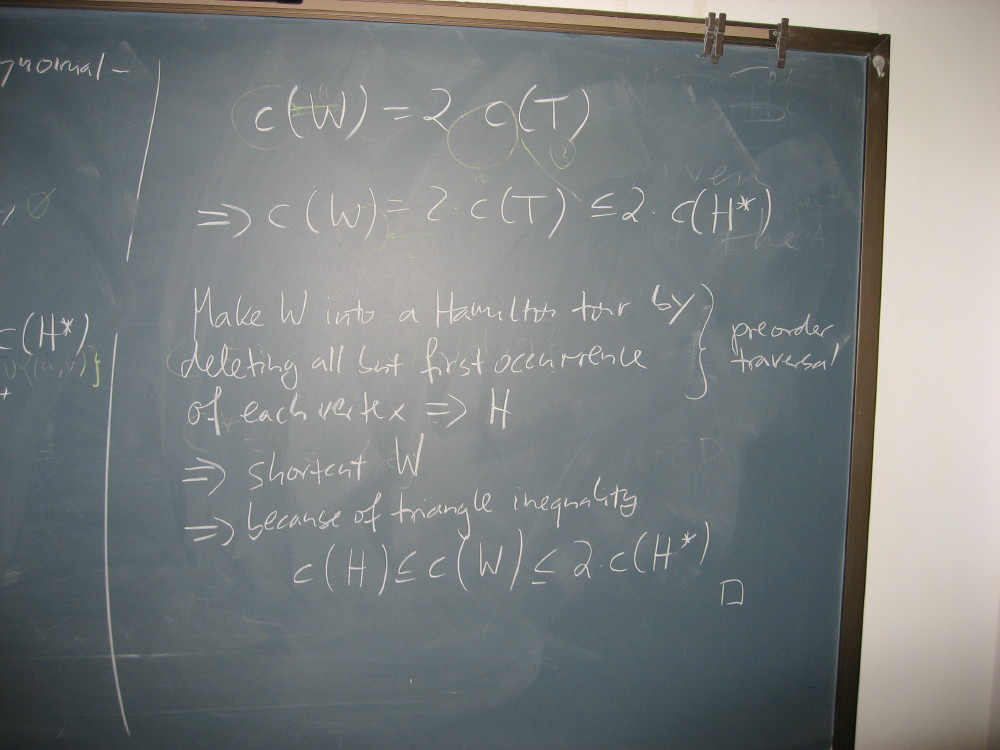 c(W) = 2 c(T)
=> c(W) = 2·c(T) ≤ 2·c(H*)
Make W into a Hamilton tour by
deleting all but first occurrence
of each vertex => H
} preorder
traversal
=> shortcut W
=> because of triangle inequality
c(H) ≤ c(W) ≤ 2·c(H*)
□
c(H*)